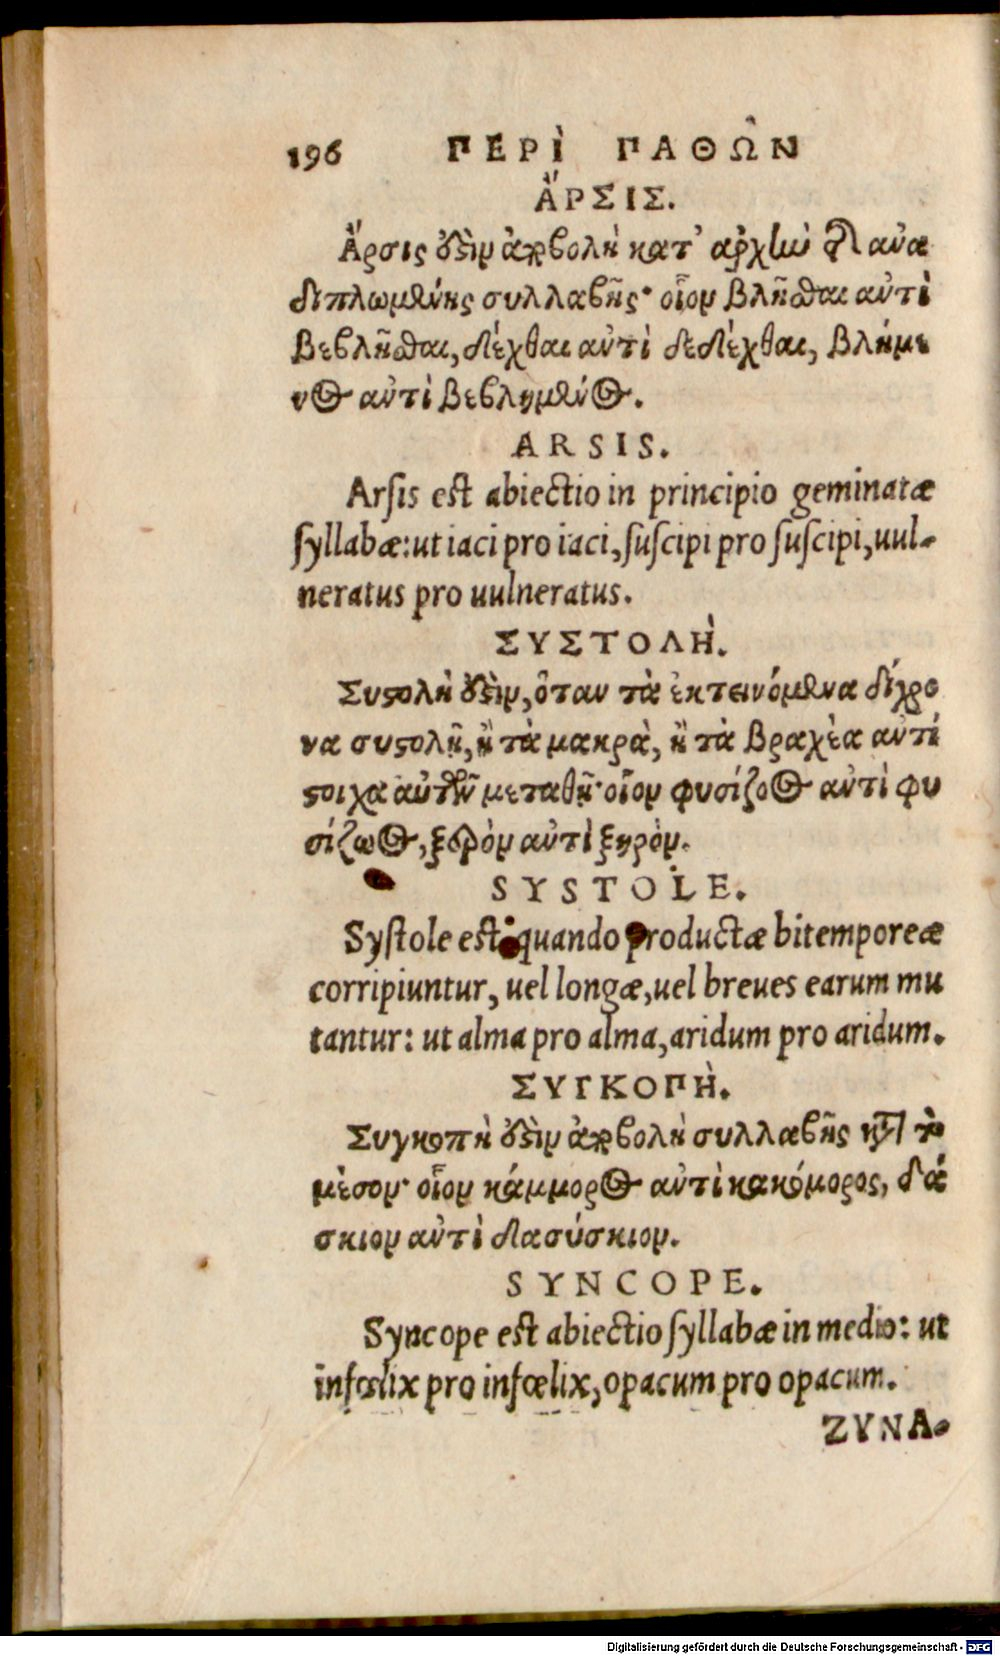 196 ΠΕΡῚ ΠΑΘΩ͂Ν
ἌΡΣΙΣ.
Ἄρσις ὅστὶν ἀποβολὴ κατ' ἀρχὴν τῆς ἀνα
διπλωμένης συλλαβῆς· οἷον βλῆσθαι ἀντὶ
βεβλῆσθαι, δέχθαι ἀντὶ δεδέχθαι, βλήμε
νος ἀντὶ βεβλημένος.
ARSIS.
Arſis est abiectio in principio geminatæ
ſyllabæ: ut iaci pro iaci, ſuſcipi pro ſuſcipi, uul-
neratus pro uulneratus.
ΣΥΣΤΟΛῊ.
Συστολὴ ὅστὶν, ὅταν τὰ ἐκτεινόμενα δίχρο
να συστολῇ, ἢ τὰ μακρὰ, ἢ τὰ βραχέα ἀντί
στοιχα αὐτῶν μεταθῇ· οἷον φυσίζοος ἀντὶ φυ
σίζωος, ξερὸν ἀντὶ ξηρὸν.
SYSTOLE.
Syſtole est quando productæ bitemporeæ
corripiuntur, uel longæ, uel breues earum mu
tantur: ut alma pro alma, aridum pro aridum.
ΣΥΓΚΟΠῊ.
Συγκοπὴ ὅστὶν ἀποβολὴ συλλαβῆς κατὰ τὸ
μέσον· οἷον κάμμορος ἀντὶ κακόμορος, δά
σκιον ἀντὶ δασύσκιον.
SYNCOPE.
Syncope est abiectio ſyllabæ in medio: ut
infœlix pro infœlix, opacum pro opacum.
ΖΥΝΑ-
Digitalisierung gefördert durch die Deutsche Forschungsgemeinschaft - DFG